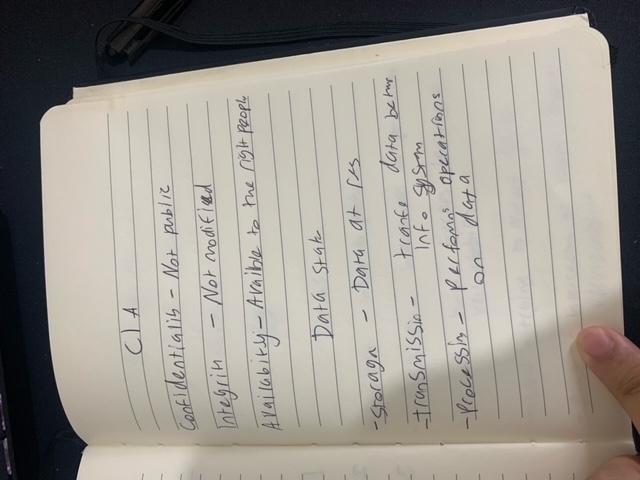 CIA
Confidentialits - Not public
Integrith - Not modified
Availability - Avaible to the right people
Data state
- Storage - Data at res
- transmissin - tranfe data betwe
info system
- Processin - performs operations
on data